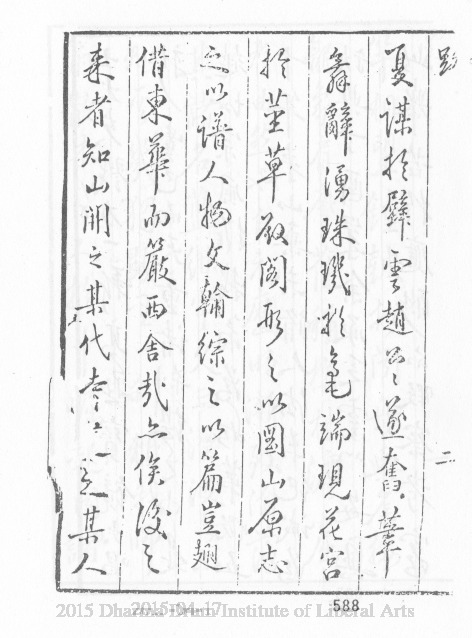 夏謀於壁雲趙公〻遂奮華
辭湧珠璣於毫端現花宮
於莖草殿閣形之以圖山原志
之以譜人物文翰綜之以篇豈翅
借東華而嚴西舍哉亦俟後之
來者知山開之某代某人
二
588
2015 Dharma Drum Institute of Liberal Arts
2015-04-17